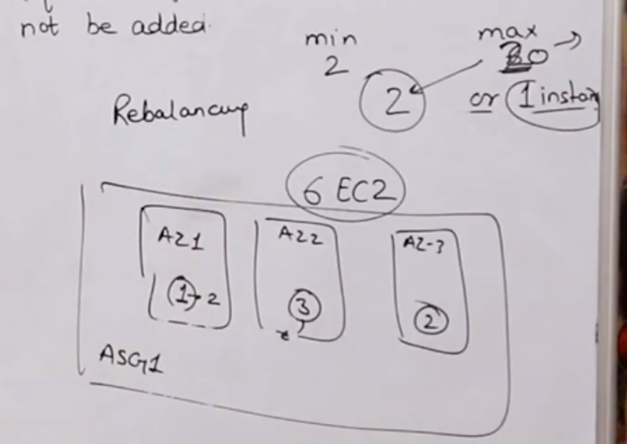 not be added.
min
2
max
20 →
2
or 1 instan
Rebalancing
6 EC2
AZ1
AZ2
AZ-3
1→2
3
2
ASG1